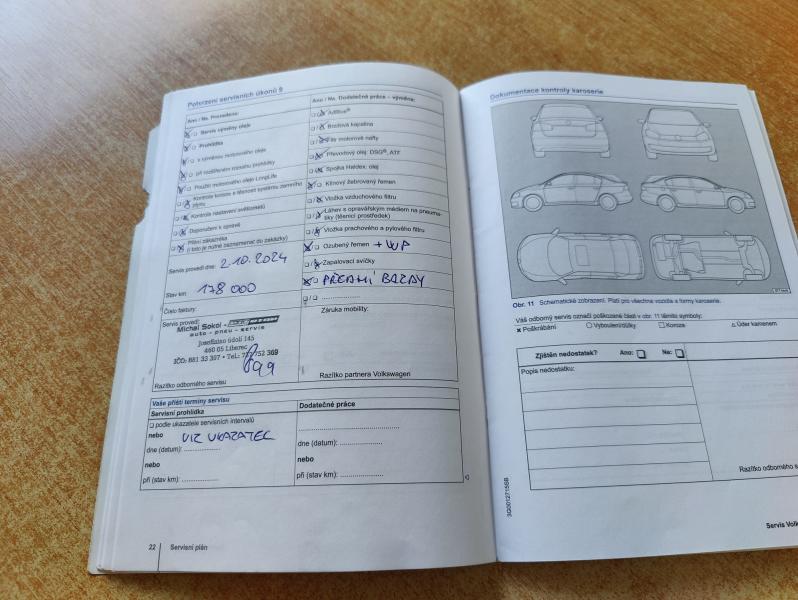 Potvrzení servisních úkonů 9
Ano / Ne Provedeno:
Servis výměny oleje
Prohlídka
s výměnou motorového oleje
při rozšířeném rozsahu prohlídky
Použití motorového oleje LongLife
Kontrola koroze a těsnosti systému zemního plynu
Kontrola nastavení světlometů
Doporučení k opravě
Přání zákazníka
(i toto je nutné zaznamenat do zakázky)
Servis provedl dne: 2.10.2024
Stav km: 178 000
Číslo faktury:
Servis provedl:
Michal Sokol -
auto - pneu - servis
Josefínino údolí 145
460 05 Liberec
IČO: 881 33 397 • Tel.: 777 752 369
Razítko odborného servisu
Ano / Ne Dodatečné práce – výměna:
AdBlue®
Brzdová kapalina
Filtr motorové nafty
Převodový olej: DSG®, ATF
Spojka Haldex: olej
Klínový žebrovaný řemen
Vložka vzduchového filtru
Láhev s opravářským médiem na pneumatiky
(těsnicí prostředek)
Vložka prachového a pylového filtru
Ozubený řemen + WP
Zapalovací svíčky
PŘEDNÍ BRZDY
Záruka mobility:
Razítko partnera Volkswagen
Vaše příští termíny servisu
Servisní prohlídka
podle ukazatele servisních intervalů
nebo VIZ UKAZATEL
dne (datum):
nebo
při (stav km):
Dodatečné práce
dne (datum):
nebo
při (stav km):
22 Servisní plán
Dokumentace kontroly karoserie
Obr. 11 Schematické zobrazení. Platí pro všechna vozidla a formy karoserie.
Váš odborný servis označí poškozené části v obr. 11 těmito symboly:
x Poškrábání O Vyboulení/důlky □ Koroze △ Úder kamenem
Zjištěn nedostatek? Ano: Ne:
Popis nedostatku:
Razítko odborného s
3G0012715SB
Servis Volk